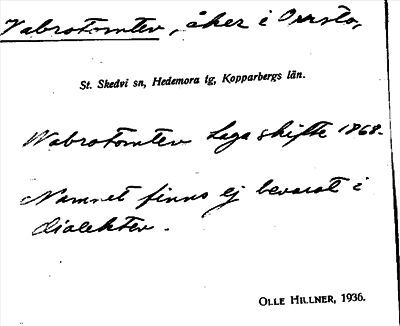 Vabrotomten, åker i Orrsta,
St. Skedvi sn, Hedemora tg, Kopparbergs län.
Wabrotomten Laga skifte 1868.
Namnet finns ej bevarat i
dialekten.
OLLE HILLNER, 1936.